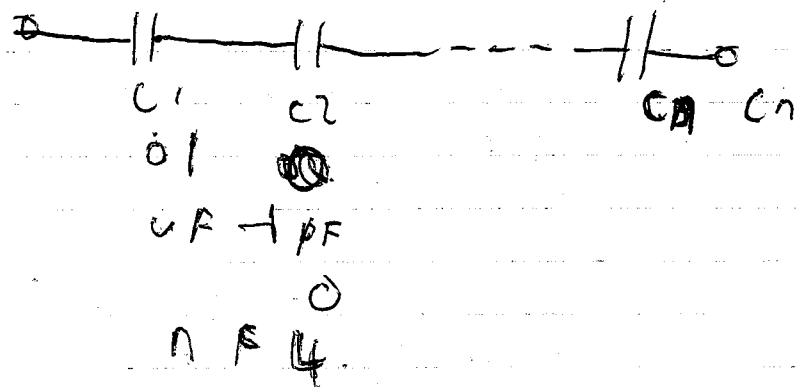 C1 C2 Cn
01
uF pF
0
n F 4